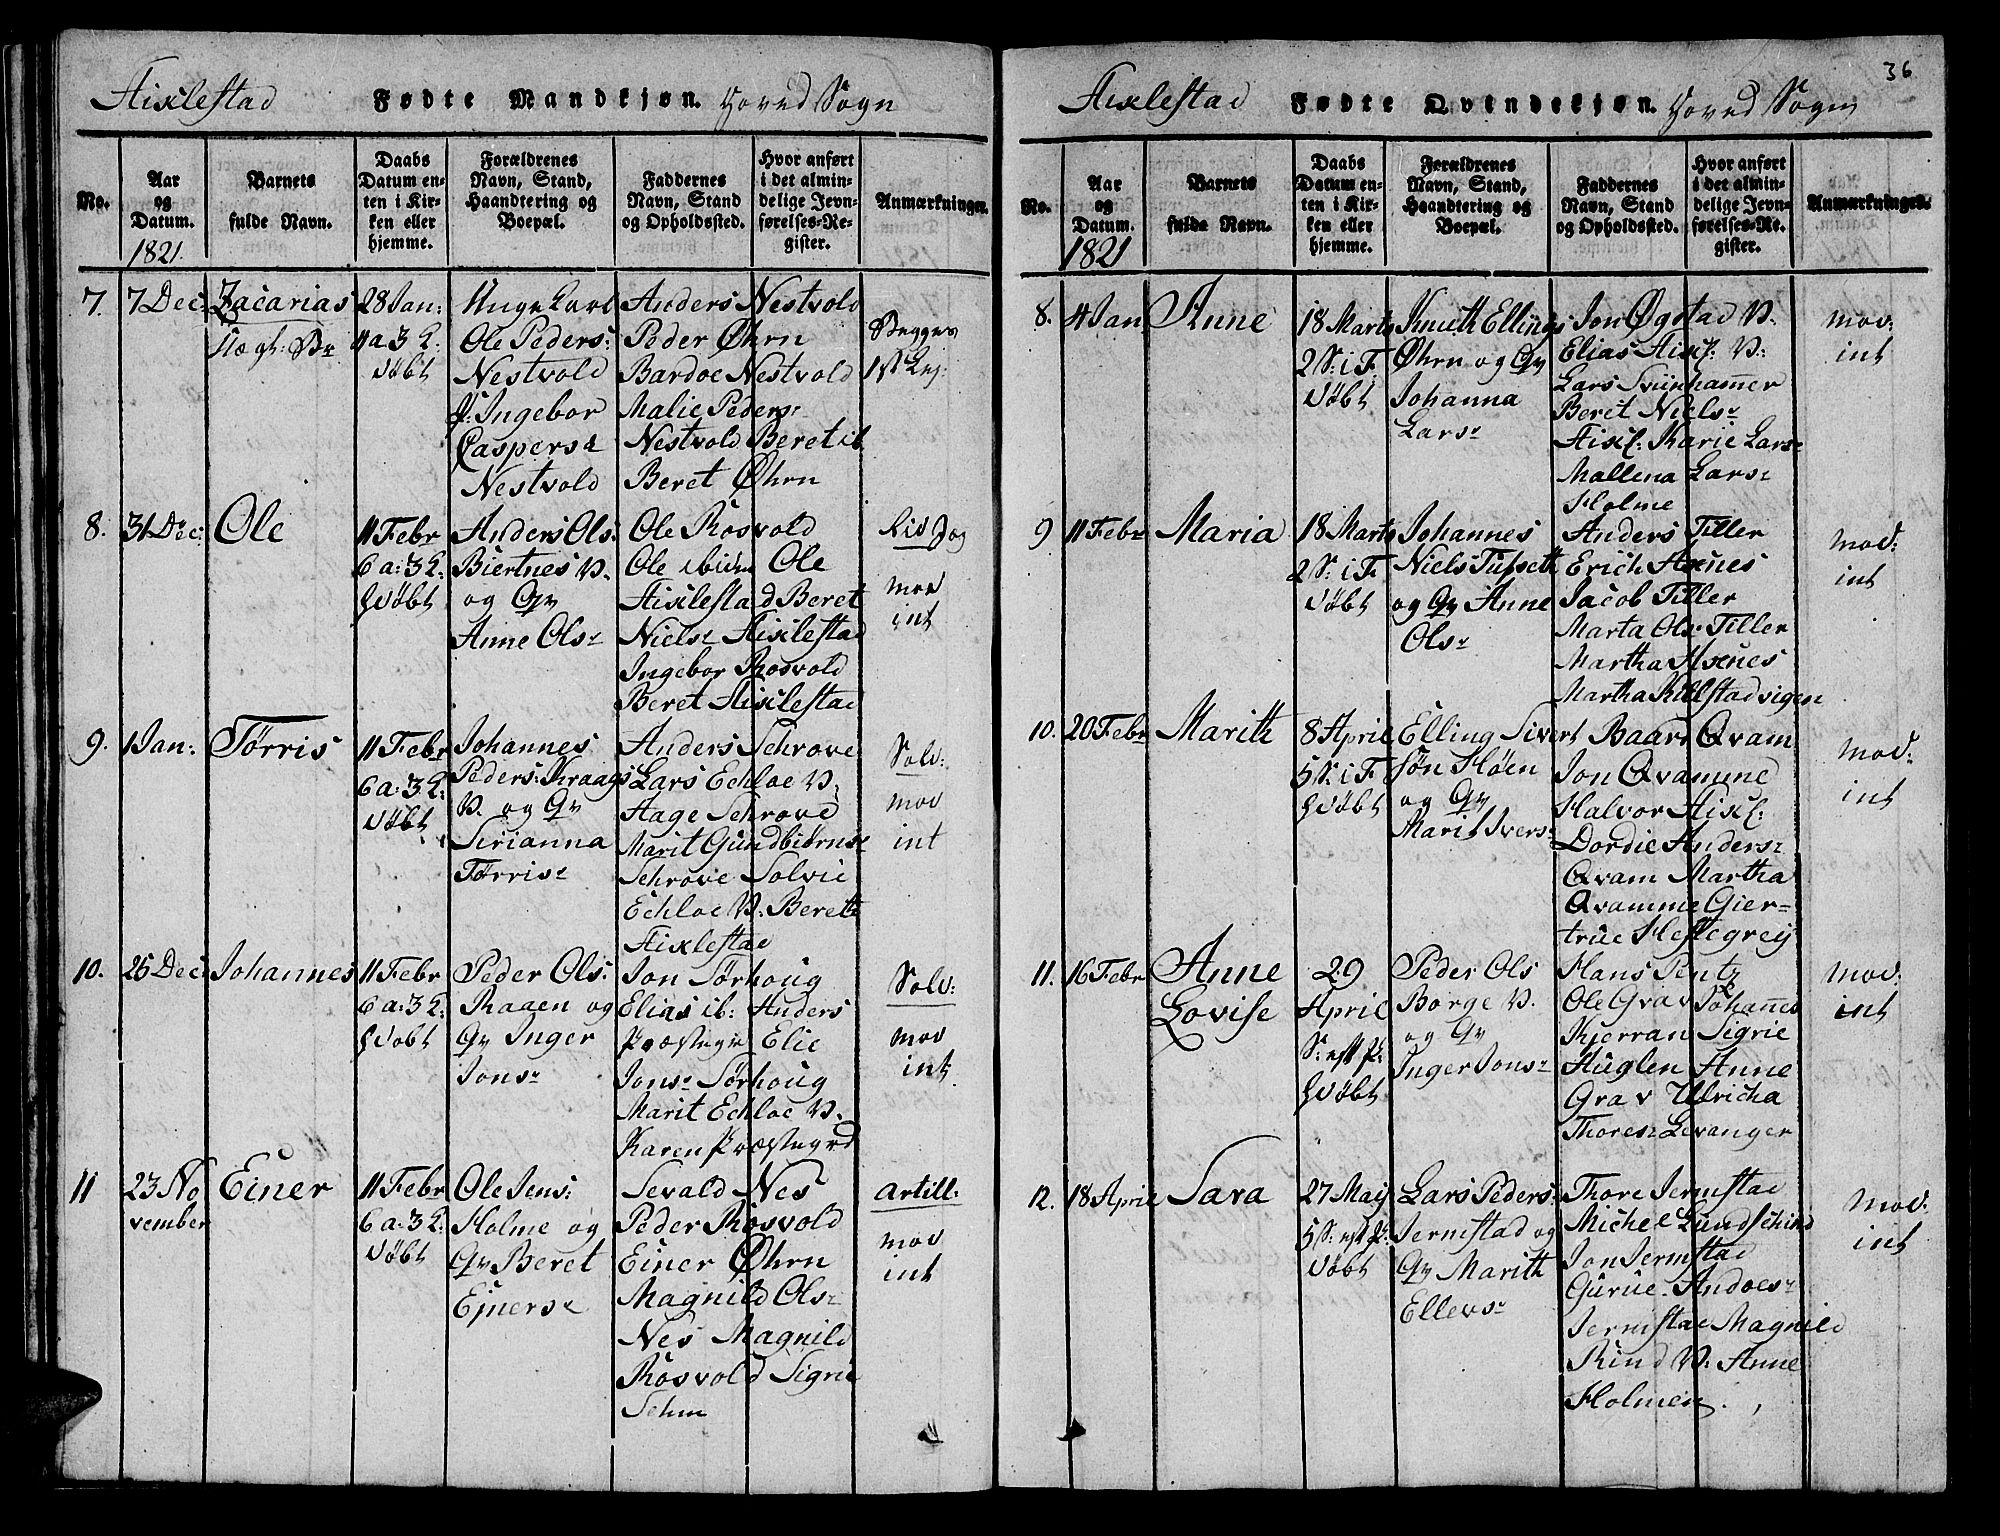 Aixlestad Fødte Mandkjøn. Hoved Sogn
No.
Aar
og
Datum.
1821.
Barnets
fulde Navn.
Daabs
Datum en-
ten i Kir-
ken eller
hjemme.
Forældrenes
Navn, Stand,
Haandtering og
Boepæl.
Faddernes
Navn, Stand
og Opholdssted.
Hvor anført
i det almin-
delige Jevn-
førelses-Re-
gister.
Anmærkninger.
7. 7 Dec
Zacarias
28 Jan:
4 a 3 L.
døbt
Unge Karl
Ole Peders:
Nestvold
p: Ingebor
Caspersd
Nestvold
Anders Nestvold
Peder Øhrn
Bardoe Nestvold
Malie Peders:
Nestvold Beret ib
Beret Øhrn
Begges
1st Lej:
8. 31 Dec:
Ole
11 Febr
6 a: 3 L:
døbt
Anders Ols:
Biertnes V.
og Qv
Anne Olsr
Ole Rosvold
Ole ibidm Ole
Aixlestad Beret
Nielsr Aixlestad
Ingebor Rosvold
Beret Aixlestad
mod
int
9. 1 Jan:
Tørris
11 Febr
6 a: 3 L:
døbt
Johannes
Peders: Kraags
V. og Qv
Sirianna
Tørrisr
Anders Schrove
Lars Echloe V:
Aage Schrove
Marit Gundbiørnsr
Schrove Solvie
Echloe V. Bereth
Aixlestad
Solv:
mod
int
10. 25 Dec
Johannes
11 Febr
6 a: 3 L:
døbt
Peder Ols:
Raaen og
Qv Inger
Jonsr
Jon Sørhoug
Elias ib: Anders
Præstegr Elie
Jonsr Sørhoug
Marit Echloe V.
Karen Præstegrd
Solv:
mod
int
11 23 No
vember
Einer
11 Febr
6 a: 3 L:
døbt
Ole Jens:
Holme og
Qv Beret
Ejnersd
Sevald Nes
Peder Rosvold
Einer Øhrn
Magnild Olsr
Nes Magnild
Rosvold Sigrie
Sehm
Artill:
mod
int
36
Aixlestad Fødte Qvindekjøn. Hoved Sogn
No.
Aar
og
Datum.
1821
Barnets
fulde Navn.
Daabs
Datum en-
ten i Kir-
ken eller
hjemme.
Forældrenes
Navn, Stand,
Haandtering og
Boepæl.
Faddernes
Navn, Stand
og Opholdssted.
Hvor anført
i det almin-
delige Jevn-
førelses-Re-
gister.
Anmærkninger.
8. 4 Jan
Anne
18 Marts
2 S: i F.
døbt
Knuth Ellings
Øhrn og Qv
Johanna
Larsr
Jon Øgstad V.
Elias Aixl: V:
Lars Svinhamer
Beret Nielsr
Aixl: Marie Larsr
Mallena Larsr
Holme
mod:
int
9 11 Febr
Maria
18 Marts
2 S: i F
døbt
Johannes
Niels Tufseth
og Qv Anne
Olsr
Anders Tiller
Erich Axnes
Jacob Tiller
Marta Olsr Tiller
Martha Axnes
Martha Killstadvigen
mod:
int
10. 20 Febr
Marith
8 April
5 S: i F
døbt
Elling Sivert
søn Fløen
og Qv
Marit Iversr
Baarr Qvam
Jon Qvamme
Halvor Aixl:
Dordie Andersr
Qvam Martha
Qvamme Gier-
true Hestegrey
mod:
int
11. 16 Febr
Anne
Lovise
29
April
S: est P:
døbt
Peder Ols
Borge V.
og Qv
Inger Jonsr
Hans Pentz
Ole Grav Johanes
Kjerran Sigrie
Huglen Anne
Grav Ulricha
Thoresr Levanger
mod:
int
12. 18 April
Sara
27 Maj
5 S: est P:
døbt
Lars Peders:
Jermstad og
Qv Marith
Ellevsr
Thore Jermstad
Michel Lundschind
Jon Jermstad
Gurue Andoesr
Jermstad Magnild
Rind V. Anne
Holmen.
mod:
int